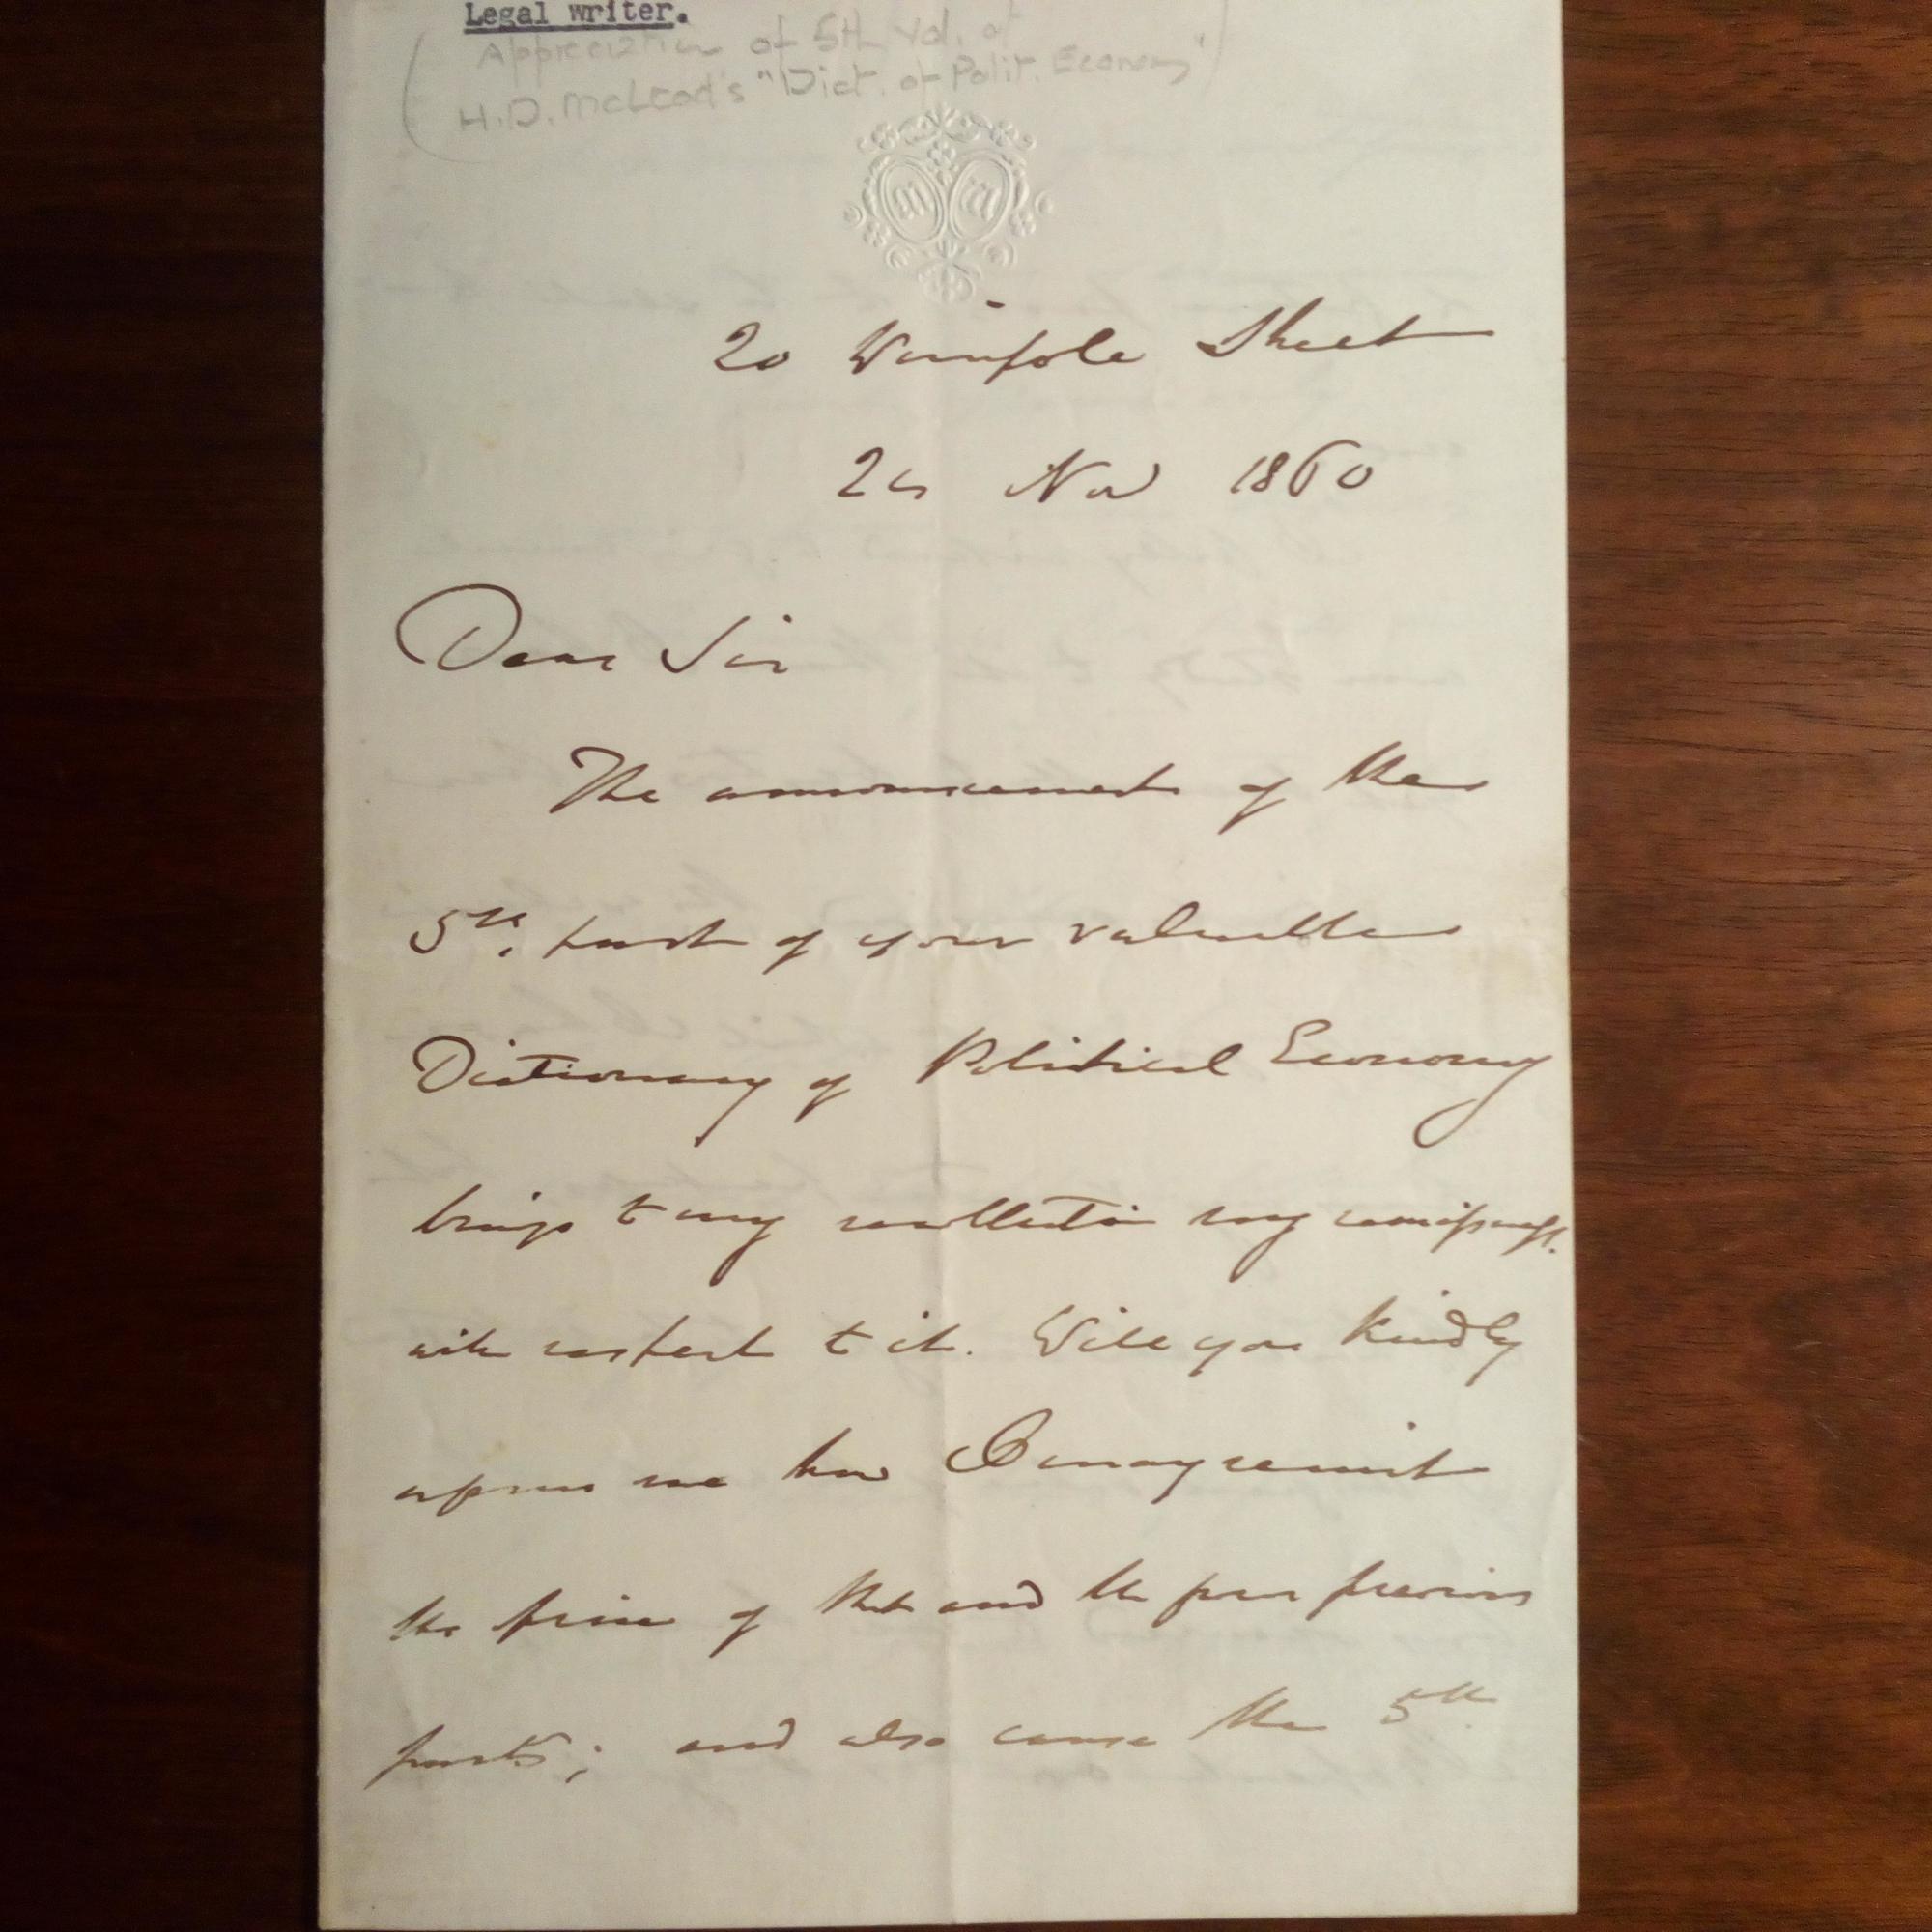 Legal writer.
(Appreciation of 5th vol. of
H.D. McLeod's "Dict. of Polit. Economy")
20 Wimpole Street
Nov 1860
Dear Sir
The announcement of the
5th. part of your valuable
Dictionary of Political Economy
brings to my recollection my remissness
with respect to it. Will you kindly
me how I may remit
the price of that and the four previous
parts; and also cause the 5th